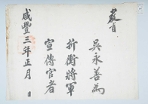 敎旨
吳永善爲
折衝將軍
宣傳官者
咸豐三年正月 日